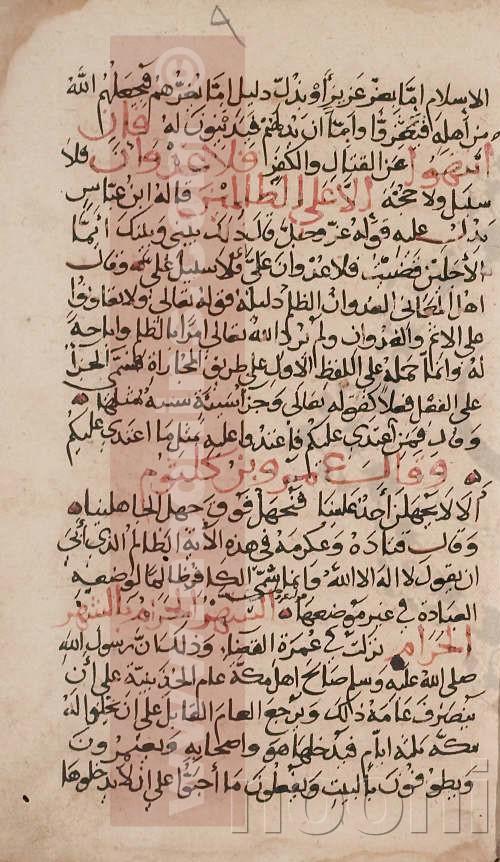 الاسلام اما بعز عزيز او بذل ذليل اما يعزهم فيجعلهم الله
من اهله فيعزوا واما ان يذلهم فيدينون له فان
انتهوا عن القتال والكفر فلا عدوان فلا
سبيل ولا حجة الا على الظالمين قاله ابن عباس
يدل عليه قوله عز وجل قال ذلك بيني وبينك ايما
الاجلين قضيت فلا عدوان علي فلا سبيل علي وقال
اهل المعاني العدوان الظلم دليله قوله تعالى ولا تعاونوا
على الاثم والعدوان ولم يرد الله تعالى امرا بالظلم واباحة
له وانما حمله على اللفظ الاول على طريق المجازاة فسمي الجزا
على الفعل فعلا كقوله تعالى وجزا سيئة سيئة مثلها
وقال فمن اعتدى عليكم فاعتدوا عليه بمثل ما اعتدى عليكم
وقال عمرو بن كلثوم
الا لا يجهلن احد علينا فنجهل فوق جهل الجاهلينا
وقال قتادة وعكرمة في هذه الآية الظالم الذي ابى
ان يقول لا اله الا الله وانما سمي الكافر ظالما لوضعه
العبادة في غير موضعها الشهر الحرام بالشهر
الحرام نزلت في عمرة القضاء وذلك ان رسول الله
صلى الله عليه وسلم صالح اهل مكة عام الحديبية على ان
ينصرف عامه ذلك ويرجع العام القابل على ان يخلوا له
مكة ثلثة ايام فيدخلها هو واصحابه ويعتمرون
ويطوفون بالبيت ويفعلون ما احبوا على ان لا يدخلوها